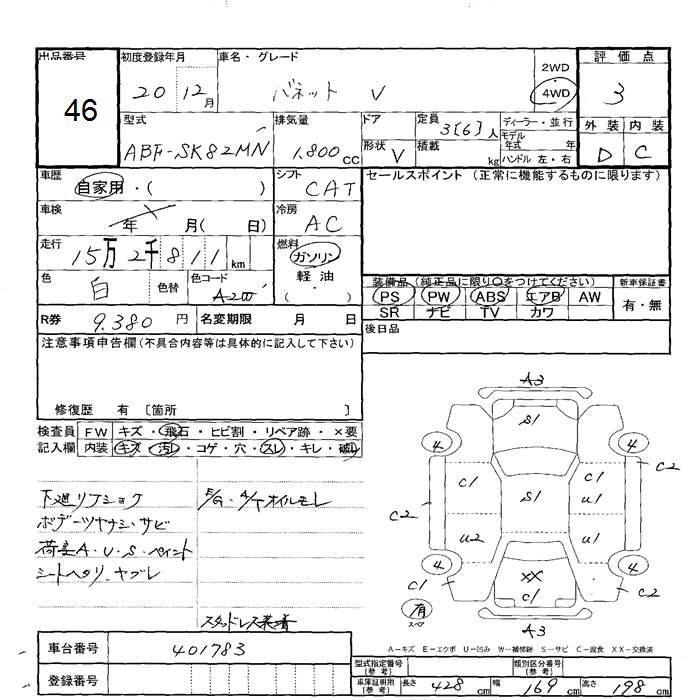 出品番号 初度登録年月 車名・グレード 評価点
46 20 12月 バネット V 2WD 4WD 3
型式 排気量 ドア 定員 ディーラー・並行 外装 内装
ABF-SK82MN 1.800cc 3[6]人 モデル年式 年
形状 V 積載 kg ハンドル 左・右 D C
車歴 自家用・( ) シフト CAT セールスポイント (正常に機能するものに限ります)
車検 年 月( 日) 冷房 AC
走行 15万2千811km 燃料 ガソリン
軽油
( )
色 白 色替 色コード A2W
装備品 (純正品に限り○をつけてください) 新車保証書
PS PW ABS エアB AW 有・無
SR ナビ TV カワ
R券 9.380円 名変期限 月 日 後日品
注意事項申告欄(不具合内容等は具体的に記入して下さい)
修復歴 有 〔箇所 〕
検査員 FW キズ・飛石・ヒビ割・リペア跡・×要
記入欄 内装 キズ・汚レ・コゲ・穴・スレ・キレ・破レ
下廻リフショク E/G・A/Tオイルモレ
ボデーツヤナシ・サビ
荷室A・U・S・ペイント
シートヘタリ、ヤブレ
スタッドレス装着
A3
S1
4 4
C1 C1 C2
S1 U1
C2 C2
U2 U1
4 4
XX
C1 C1 C2
有
スペア
A3
車台番号 401783
登録番号
A-キズ E-エクボ U-凹み W-補修跡 S-サビ C-腐食 XX-交換済
型式指定番号(参考) 類別区分番号(参考)
車庫証明用(参考) 長さ 428cm 幅 169cm 高さ 198cm